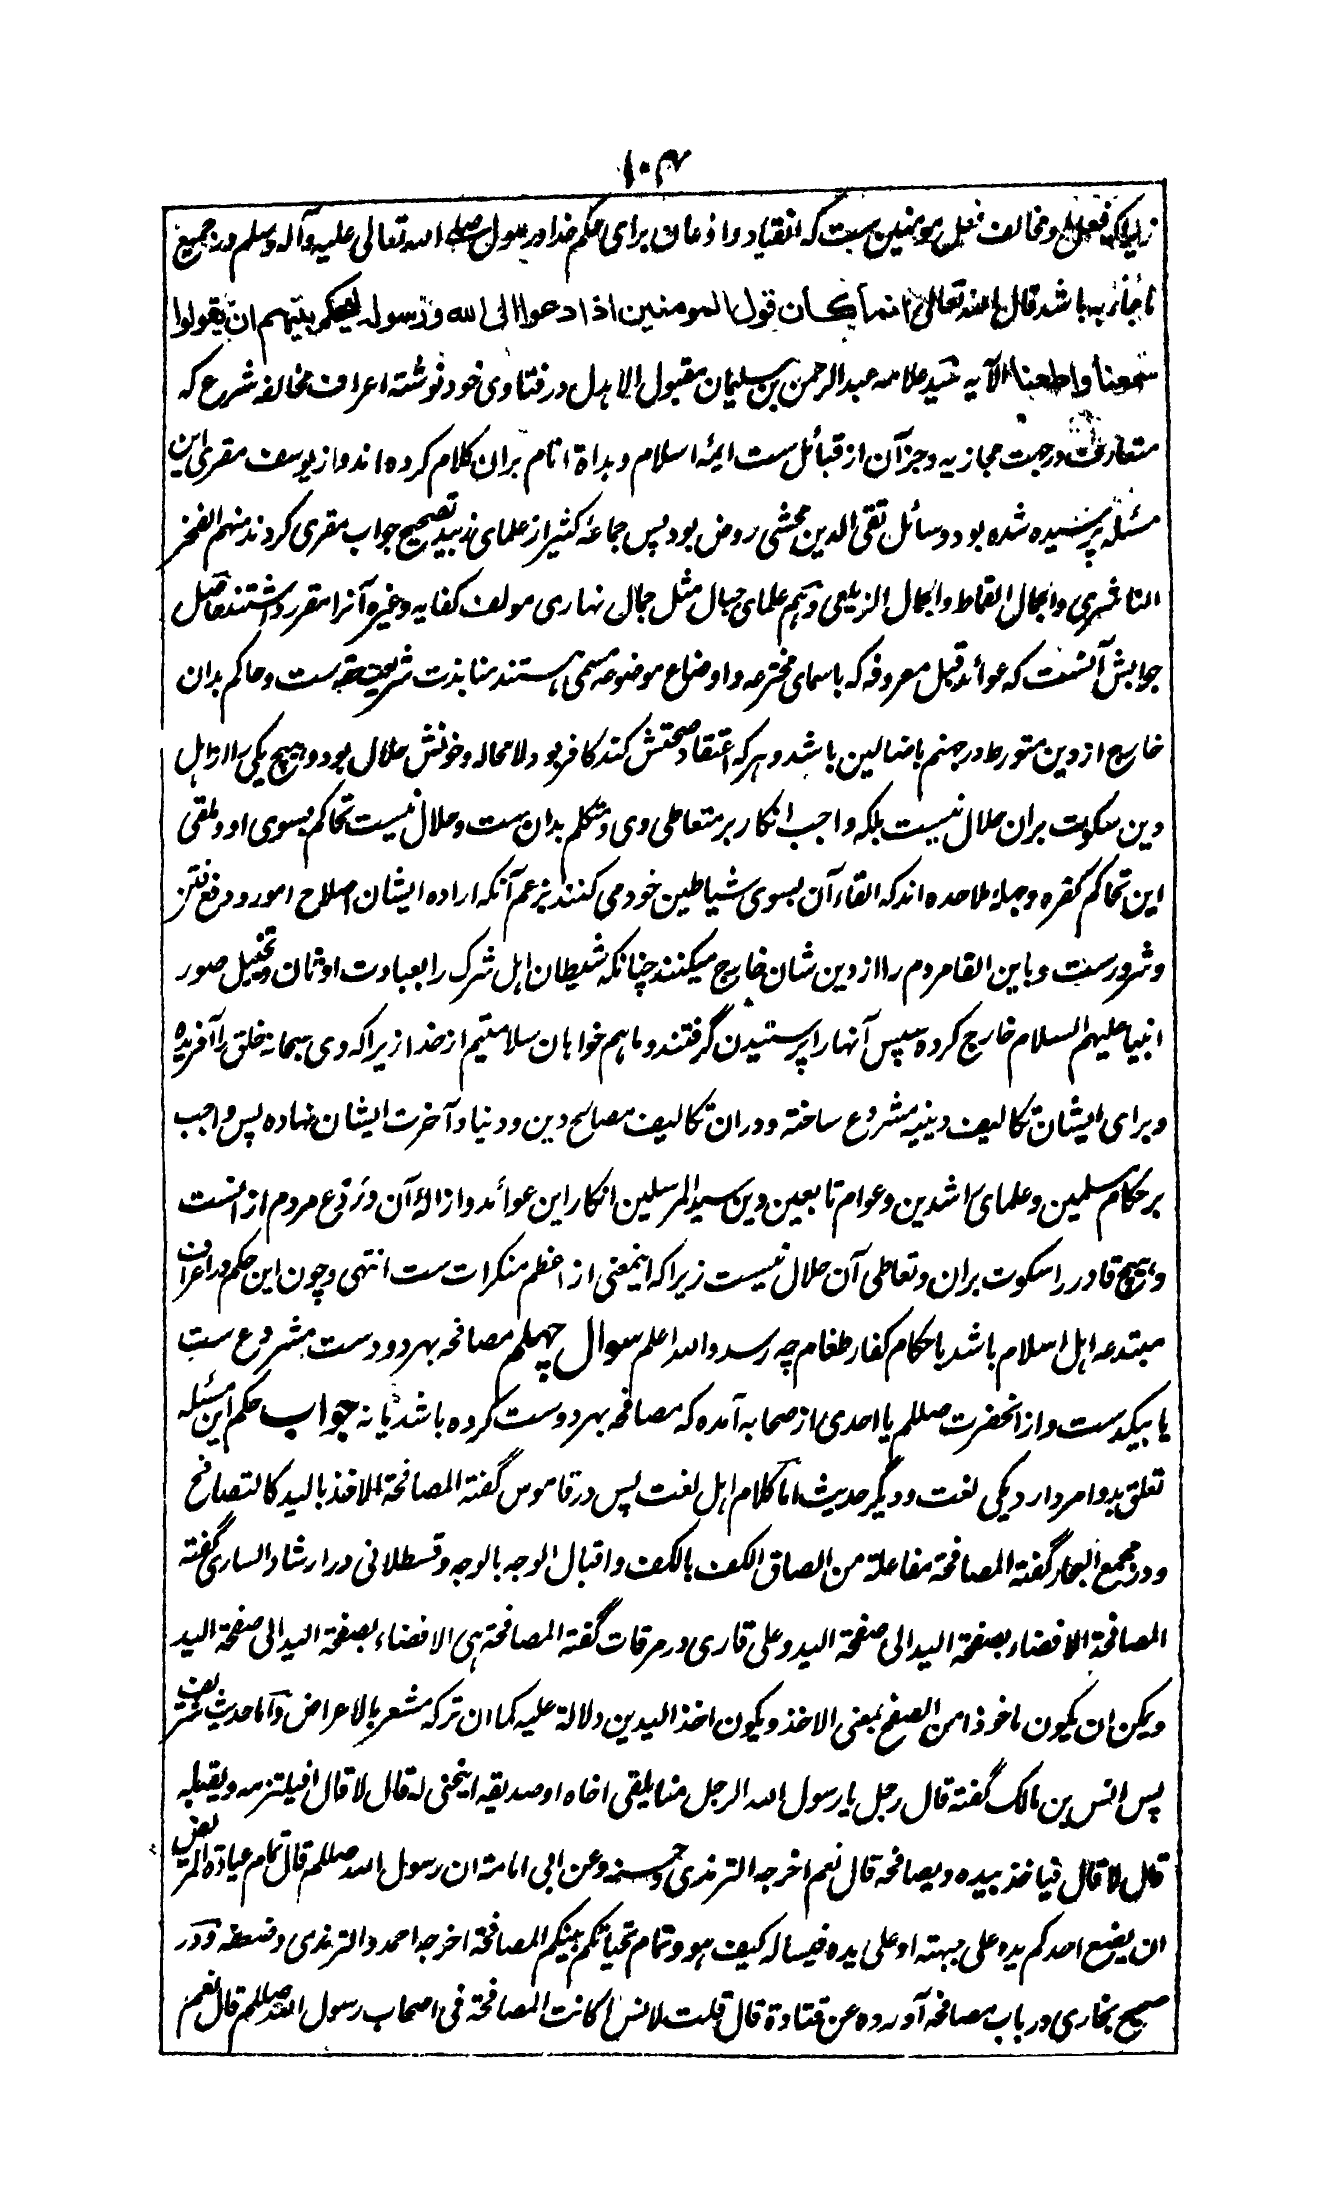 ۱۰۴
زیراکہ فعل و مخالف فعل مومنین ست کہ انقیاد و اذعان برای حکم خدا و رسول صلے اللہ تعالی علیہ وآلہ وسلم در جمیع
باشد قال اللہ تعالی انما کان قول المومنین اذا دعوا الی الله ورسوله لیحکم بینهم ان یقولوا
سمعنا واطعنا الآیہ سید علامہ عبدالرحمن بن سلیمان مقبول الاہدل در فتاوی خود نوشتہ اعراف مخالفہ شرع کہ
متعارف در جہت حجازیہ و جز آن از قبائل ست ایمۂ اسلام و ہداۃ انام بران کلام کردہ اند و از یوسف مقری این
مسئلہ پرسیدہ شدہ بود و سائل تقی الدین محشی روض بود پس جماعۂ کثیر از علمای زبید تصحیح جواب مقری کردند منہم الفخر
الناشری و الجمال القماط و الجمال الزیلعی و ہم علمای جبال مثل جمال نہاری مولف کفایہ وغیرہ آنرا مقرر داشتند حاصل
جوابش آنست کہ عوائد قبل معروفہ کہ باسمای مخترعہ و اوضاع موضوعہ مسمی ہستند منابذت شریعت حقہ ست و حاکم بدان
خارج از دین متورط در جہنم با ضالین باشد و ہر کہ اعتقاد صحتش کند کافر بود لا محالہ و خونش حلال بود و ہیچ یکی را از اہل
دین سکوت بران حلال نیست بلکہ واجب انکار بر متعاطی وی و متکلم بدان ست و حلال نیست تحاکم بسوی او و ملقی
این تحاکم کفرہ و جہلۂ ملاحدہ اند کہ القاء آن بسوی شیاطین خود می کنند بزعم آنکہ ارادہ ایشان اصلاح امور و دفع فتن
و شرورست و باین القا مردم را از دین شان خارج میکنند چنانکہ شیطان اہل شرک را بعبادت اوثان و تخییل صور
انبیا علیہم السلام خارج کردہ سپس آنہا را پرستیدن گرفتند و ما ہم خواہان سلامتیم از خدا زیراکہ وی سبحانہ خلق را آفریدہ
و برای ایشان تکالیف دینیہ مشروع ساختہ و دران تکالیف مصالح دین و دنیا و آخرت ایشان نہادہ پس واجب
بر حکام مسلمین و علمای راشدین و عوام تابعین دین سید المرسلین انکار این عوائد و ازالۂ آن و ردع مردم از انست
و ہیچ قادر را سکوت بران و تعاطی آن حلال نیست زیراکہ اینمعنی از اعظم منکرات ست انتہی و چون این حکم در اعراف
مبتدعہ اہل اسلام باشد با حکام کفار طغام چہ رسد واللہ اعلم سوال چہلم مصافحہ بہر دو دست مشروع ست
یا بیکدست و از انحضرت صللم یا احدی از صحابہ آمدہ کہ مصافحہ بہر دو دست کردہ باشد یا نہ جواب حکم این مسئلہ
تعلق بدو امر دارد یکی لغت و دیگر حدیث اما کلام اہل لغت پس در قاموس گفتہ المصافحۃ الاخذ بالید کالتصافح
و در مجمع البحار گفتہ المصافحۃ مفاعلۃ من الصاق الکف بالکف و اقبال الوجہ بالوجہ و قسطلانی در ارشاد الساری گفتہ
المصافحۃ الافضاء بصفحۃ الید الی صفحۃ الید و علی قاری در مرقات گفتہ المصافحۃ ہی الافضاء بصفحۃ الید الی صفحۃ الید
ویمکن ان یکون ماخوذا من الصفح بمعنی الاخذ و یکون اخذ الیدین دلالۃ علیہ کما ان ترکہ مشعر بالاعراض و اما حدیث شریف
پس انس بن مالک گفتہ قال رجل یا رسول اللہ الرجل منا یلقی اخاہ او صدیقہ اینحنی لہ قال لا قال افیلتزمہ و یقبلہ
قال لا قال فیاخذ بیدہ و یصافحہ قال نعم اخرجہ الترمذی وحسنہ وعن ابی امامۃ ان رسول اللہ صللم قال تمام عیادۃ المریض
ان یضع احدکم یدہ علی جبہتہ او علی یدہ فیسالہ کیف ہو و تمام تحیاتکم بینکم المصافحۃ اخرجہ احمد والترمذی وضعفہ و در
صحیح بخاری در باب مصافحہ آوردہ عن قتادۃ قال قلت لانس اکانت المصافحۃ فی اصحاب رسول اللہ صللم قال نعم